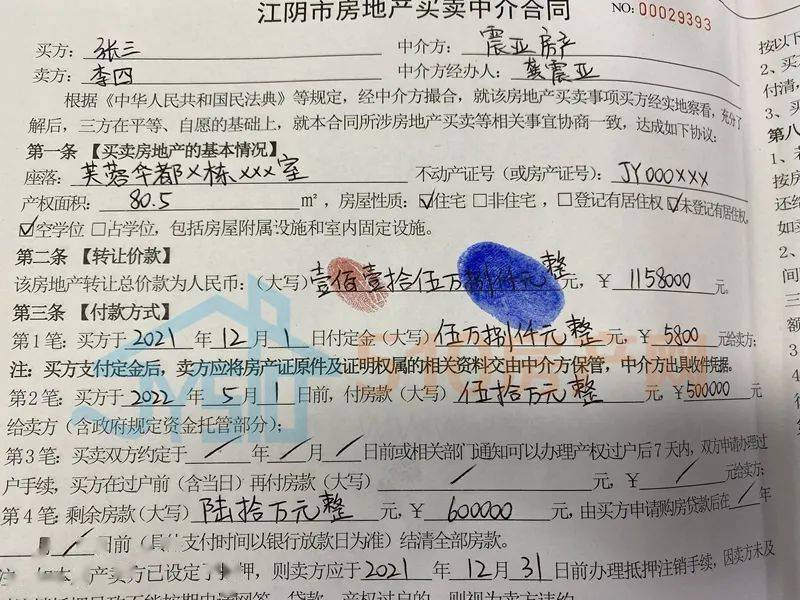 江阴市房地产买卖中介合同
NO:00029393
买方:张三 中介方:震亚房产
卖方:李四 中介方经办人:龚震亚
根据《中华人民共和国民法典》等规定,经中介方撮合,就该房地产买卖事项买方经实地察看,充分了
解后,三方在平等、自愿的基础上,就本合同所涉房地产买卖等相关事宜协商一致,达成如下协议:
第一条 【买卖房地产的基本情况】
座落:芙蓉华都×栋×××室 不动产证号(或房产证号):JY000×××
产权面积:80.5 ㎡,房屋性质:☑住宅 □非住宅,□登记有居住权 ☑未登记有居住权,
☑空学位 □占学位,包括房屋附属设施和室内固定设施。
第二条 【转让价款】
该房地产转让总价款为人民币:(大写)壹佰壹拾伍万捌仟元整元,¥1158000元。
第三条 【付款方式】
第1笔:买方于2021年12月1日付定金(大写)伍万捌仟元整元,¥5800元
注:买方支付定金后,卖方应将房产证原件及证明权属的相关资料交由中介方保管,中介方出具收件凭据。
第2笔:买方于2022年5月1日前,付房款(大写)伍拾万元整元,¥500000元
给卖方(含政府规定资金托管部分);
第3笔:买卖双方约定于/年/月/日前或相关部门通知可以办理产权过户后7天内,双方申请办理过
户手续,买方在过户前(含当日)再付房款(大写)/元,¥/元给卖方;
第4笔:剩余房款(大写)陆拾万元整元,¥600000元,由买方申请购房贷款后在/年
月/日前(具体支付时间以银行放款日为准)结清全部房款。
产卖方已设定了 押,则卖方应于2021年12月31日前办理抵押注销手续,因卖方未及
贷款、产权过户的,则视为卖方违约
按以下
2、买
付清,
3、买
第八
1、
按房
还给
如买
2、
间